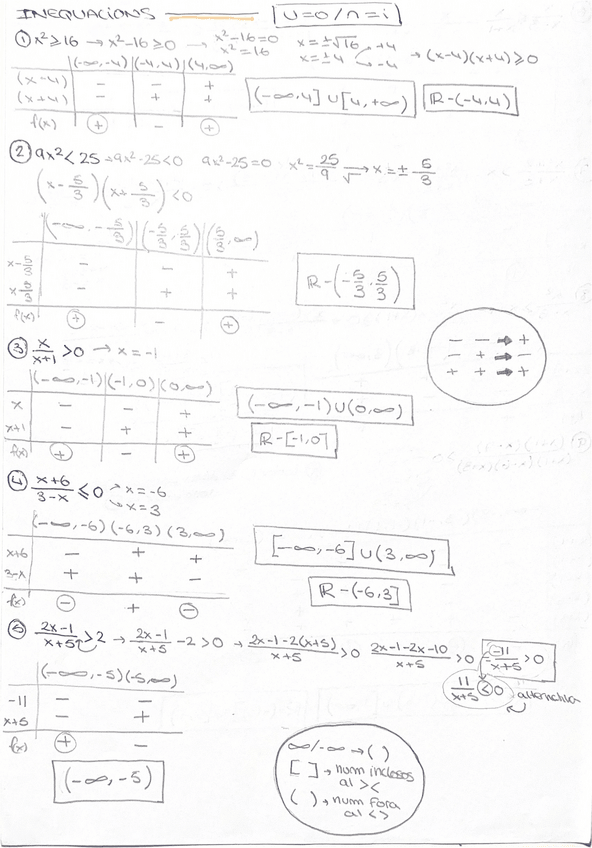 INEQUACIONS U=o/n=i
① x²≥16 → x²-16≥0 → x²-16=0 x=±√16 +4 → (x-4)(x+4)≥0
x²=16 x=±4 -4
(-∞,-4) (-4,4) (4,∞)
(x-4) - - +
(x+4) - + +
f(x) + - +
(-∞,4] ∪ [4,+∞) ℝ-(-4,4)
② 9x²<25 → 9x²-25<0 9x²-25=0 x²=25/9 √ → x=± 5/3
(x-5/3)(x+5/3)<0
(-∞,-5/3) (-5/3,5/3) (5/3,∞)
x-5/3 - - +
x 5/3 - + +
f(x) + - +
ℝ-(-5/3,5/3)
- - → +
- + → -
+ + → +
③ x/x+1 >0 → x=-1
(-∞,-1) (-1,0) (0,∞)
x - - +
x+1 - + +
f(x) + - +
(-∞,-1)∪(0,∞)
ℝ-[-1,0]
④ x+6/3-x ≤0 x=-6
x=3
(-∞,-6) (-6,3) (3,∞)
x+6 - + +
3-x + + -
f(x) - + -
[-∞,-6]∪(3,∞)
ℝ-(-6,3]
⑤ 2x-1/x+5 >2 → 2x-1/x+5 -2>0 → 2x-1-2(x+5)/x+5 >0 2x-1-2x-10/x+5 >0 = -11/x+5 >0
11/x+5 <0 alternativa
(-∞,-5) (-5,∞)
-11 - -
x+5 - +
f(x) + -
(-∞,-5)
∞/-∞ → ( )
[ ] → num inclosos
al ><
( ) → num fora
al <>